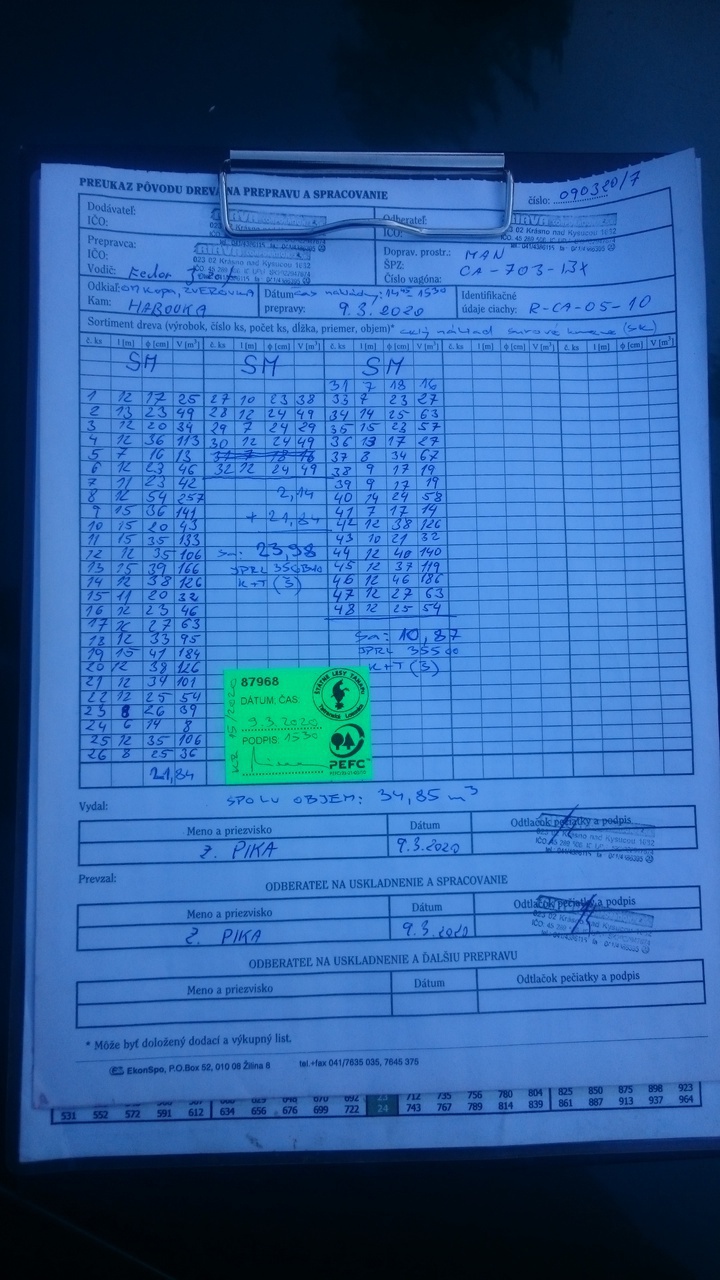 PREUKAZ PÔVODU DREVA NA PREPRAVU A SPRACOVANIE
číslo: 090320/7
Dodávateľ:
IČO:
023 02 Krásno nad Kysucou 1632
Odberateľ:
IČO:
023 02 Krásno nad Kysucou 1632
Prepravca:
IČO:
023 02 Krásno nad Kysucou 1632
Vodič: Fedor
Doprav. prostr.: MAN
ŠPZ: CA-703-BX
Číslo vagóna:
Odkiaľ: ZVEROVKA
Kam: HABOVKA
Dátum čas nakládky: 14 45 - 15 30
prepravy: 9.3.2020
Identifikačné
údaje ciachy: R-CA-05-10
Sortiment dreva (výrobok, číslo ks, počet ks, dĺžka, priemer, objem)* celý náklad surové kmene (SK)
č. ks l [m] ϕ [cm] V [m³] č. ks l [m] ϕ [cm] V [m³] č. ks l [m] ϕ [cm] V [m³] č. ks l [m] ϕ [cm] V [m³] č. ks l [m] ϕ [cm] V [m³]
SM SM SM
31 7 18 16
1 12 17 25 27 10 23 38 33 7 23 27
2 13 23 49 28 12 24 49 34 14 25 63
3 12 20 34 29 7 24 29 35 15 23 57
4 12 36 113 30 12 24 49 36 13 17 27
5 7 16 13 31 7 18 16 37 8 34 67
6 12 23 46 32 12 24 49 38 9 17 19
7 11 23 42 39 9 17 19
8 12 54 257 2,14 40 14 24 58
9 15 36 141 + 21,84 41 7 17 14
10 15 20 43 42 12 38 126
11 15 35 133 43 10 21 32
12 12 35 106 Sm: 23,98 44 12 40 140
13 15 39 166 JPRL 45 12 37 119
14 12 38 126 K+T (Š) 46 12 46 186
15 11 20 32 47 12 27 63
16 12 23 46 48 12 25 54
17 12 27 63
18 12 33 95 Sm: 10,87
19 15 41 184 JPRL 355
20 12 38 126 K+T (Š)
21 12 34 101
22 12 25 54
23 8 26 39
24 6 14 8
25 12 35 106
26 8 25 36
21,84
87968
DÁTUM: ČAS:
9.3.2020
PODPIS: 15 30
15/2020
ŠTÁTNE LESY TANAPU
Tatranská Lomnica
PEFC
SPOLU OBJEM: 34,85 m³
Vydal:
Meno a priezvisko Dátum Odtlačok pečiatky a podpis
Ž. PIKA 9.3.2020
023 02 Krásno nad Kysucou 1632
Prevzal:
ODBERATEĽ NA USKLADNENIE A SPRACOVANIE
Meno a priezvisko Dátum Odtlačok pečiatky a podpis
Ž. PIKA 9.3.2020
ODBERATEĽ NA USKLADNENIE A ĎALŠIU PREPRAVU
Meno a priezvisko Dátum Odtlačok pečiatky a podpis
* Môže byť doložený dodací a výkupný list.
EkonSpo, P.O.Box 52, 010 08 Žilina 8 tel.+fax 041/7635 035, 7645 375
692 23 712 735 756 780 804 825 850 875 898 923
531 552 572 591 612 634 656 676 699 722 24 743 767 789 814 839 861 887 913 937 964